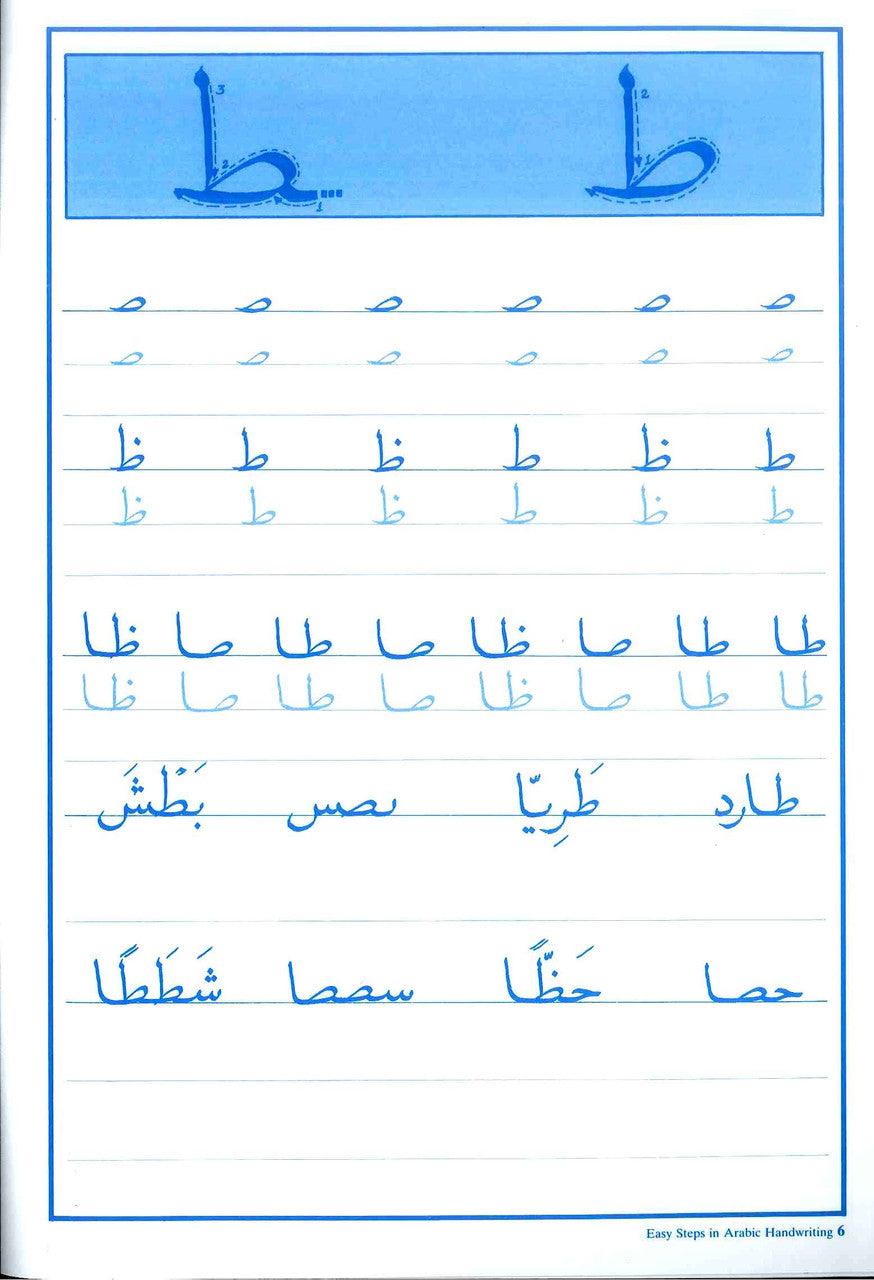 2 1 ط 3 2 1 ـط
صـ صـ صـ صـ صـ صـ
صـ صـ صـ صـ صـ صـ
ط ظ ط ظ ط ظ
ط ظ ط ظ ط ظ
طا طا صا ظا صا طا صا ظا
طا طا صا ظا صا طا صا ظا
طارد طَرِيّا ىصس بَطْشَ
حصا حَظًّا سصصا شَطَطًا
Easy Steps in Arabic Handwriting 6